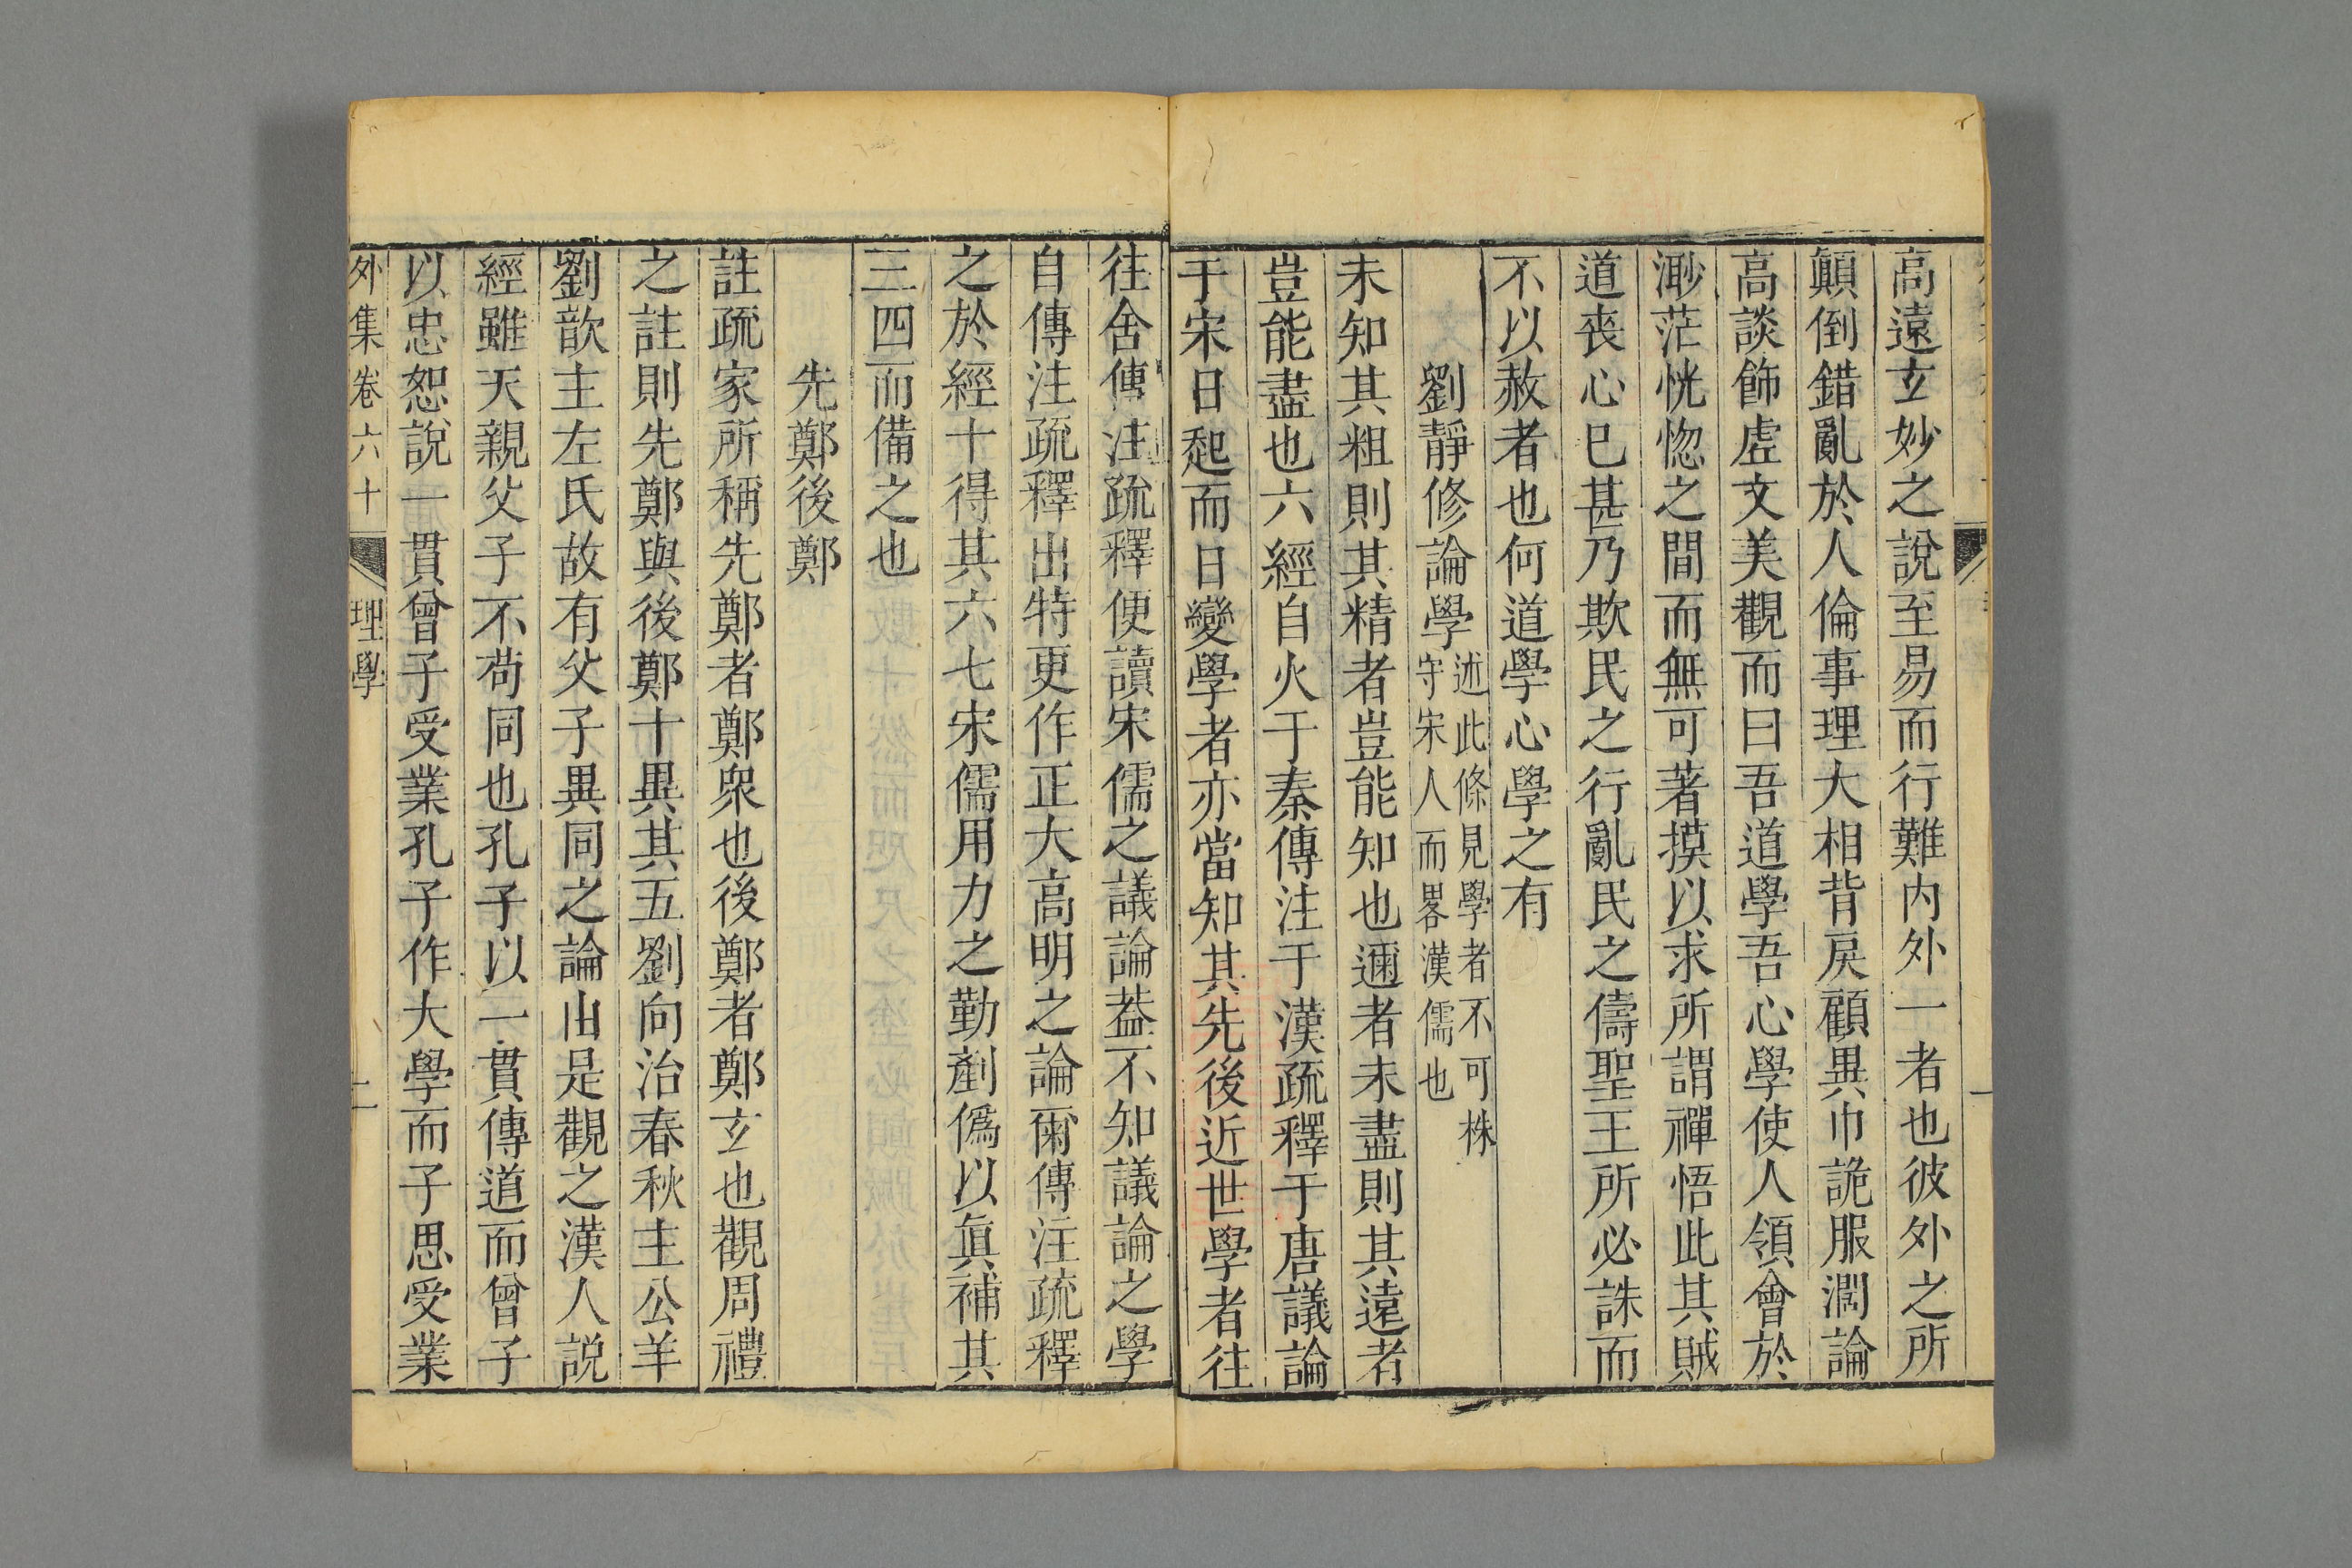 高遠玄妙之說至易而行難内外一者也彼外之所
顛倒錯亂於人倫事理大相背戾顧異巾詭服濶論
高談飾虛文美觀而曰吾道學吾心學使人領會於
渺茫恍惚之間而無可著摸以求所謂禪悟此其賊
道喪心已甚乃欺民之行亂民之儔聖王所必誅而
不以赦者也何道學心學之有
劉靜修論學述此條見學者不可株
守宋人而畧漢儒也
未知其粗則其精者豈能知也邇者未盡則其遠者
豈能盡也六經自火于秦傳注于漢疏釋于唐議論
于宋日起而日變學者亦當知其先後近世學者往
往舍傳注疏釋便讀宋儒之議論葢不知議論之學
自傳注疏釋出特更作正大高明之論爾傳注疏釋
之於經十得其六七宋儒用力之勤剷僞以眞補其
三四而備之也
先鄭後鄭
註疏家所稱先鄭者鄭衆也後鄭者鄭玄也觀周禮
之註則先鄭與後鄭十異其五劉向治春秋主公羊
劉歆主左氏故有父子異同之論由是觀之漢人說
經雖天親父子不苟同也孔子以一貫傳道而曾子
以忠恕說一貫曾子受業孔子作大學而子思受業
外集卷六十 理學 二